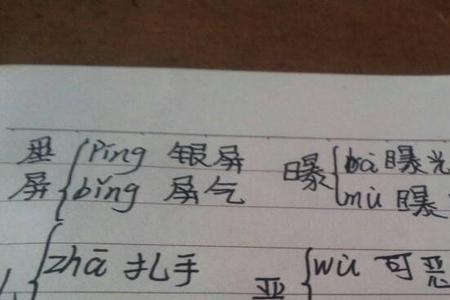 píng 银屏
屏
bǐng 屏气
曝
bà 曝光
mù 曝
zhā 扎手
wù 可恶